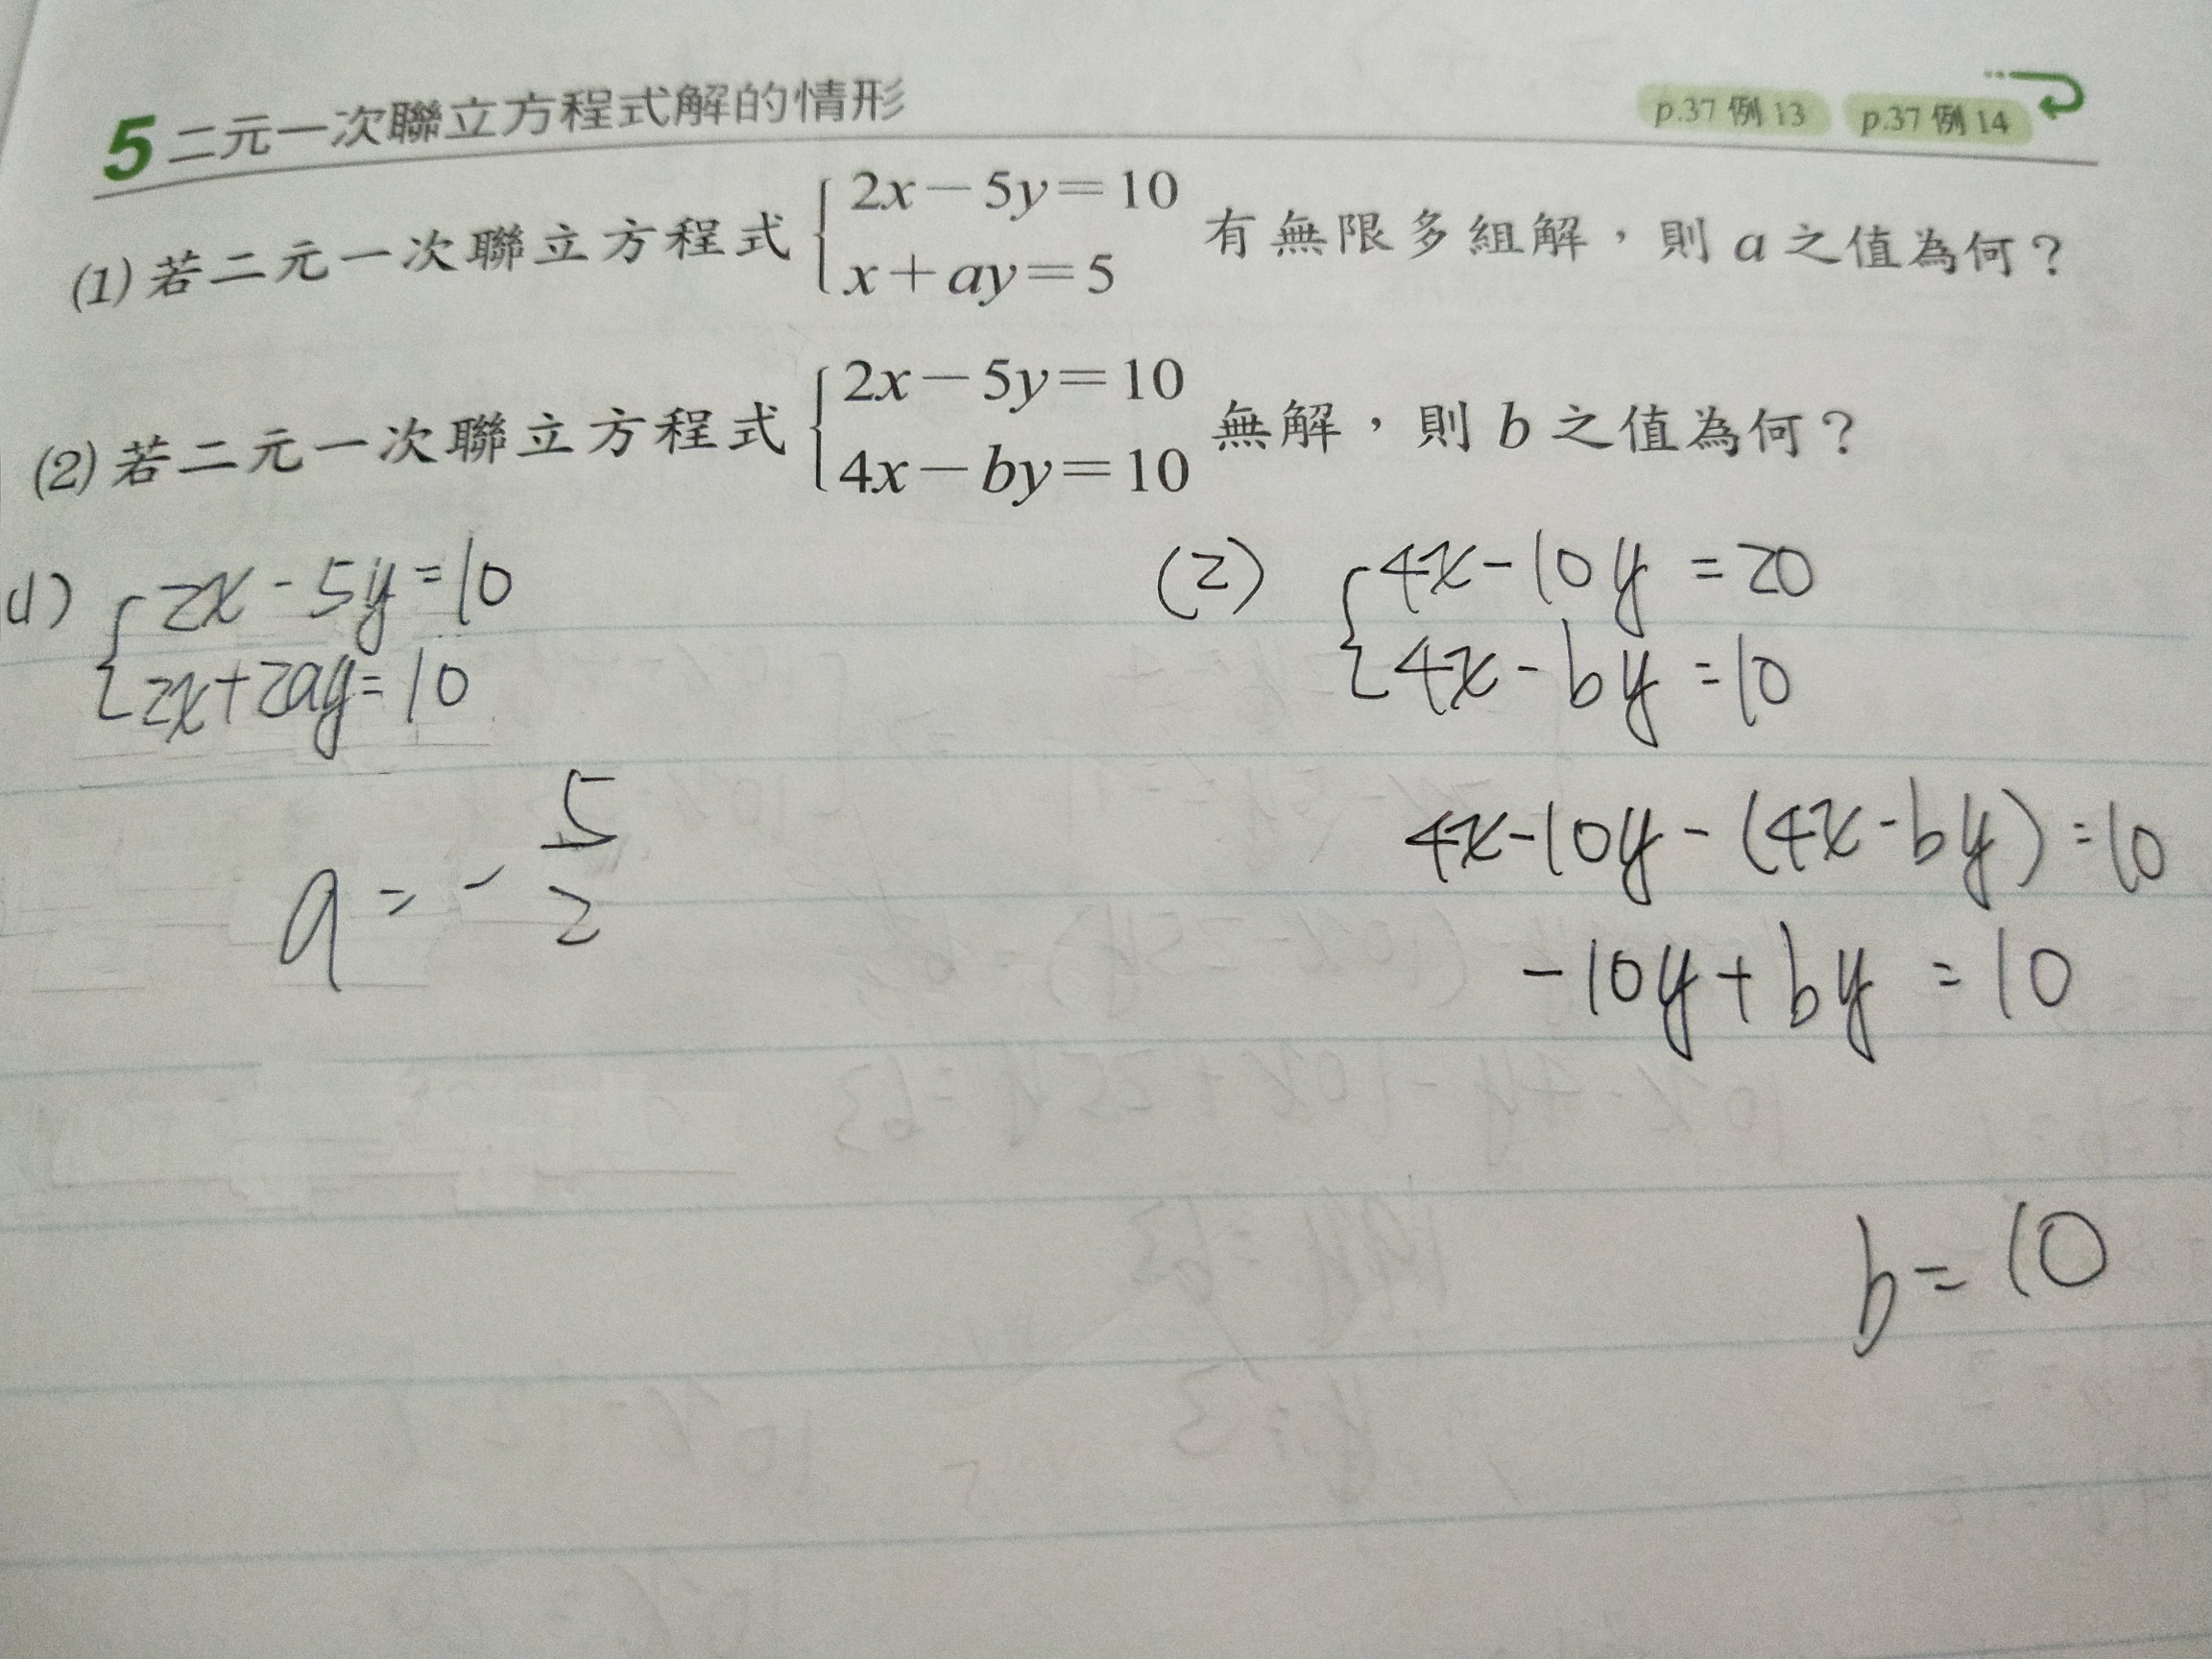 5 二元一次聯立方程式解的情形 p.37 例 13 p.37 例 14
(1) 若二元一次聯立方程式 { 2x－5y＝10
x＋ay＝5 有無限多組解，則 a 之值為何？
(2) 若二元一次聯立方程式 { 2x－5y＝10
4x－by＝10 無解，則 b 之值為何？
(1) { 2x - 5y = 10
2x + 2ay = 10
a = - 5/2
(2) { 4x - 10y = 20
4x - by = 10
4x - 10y - (4x - by) = 10
-10y + by = 10
b = 10